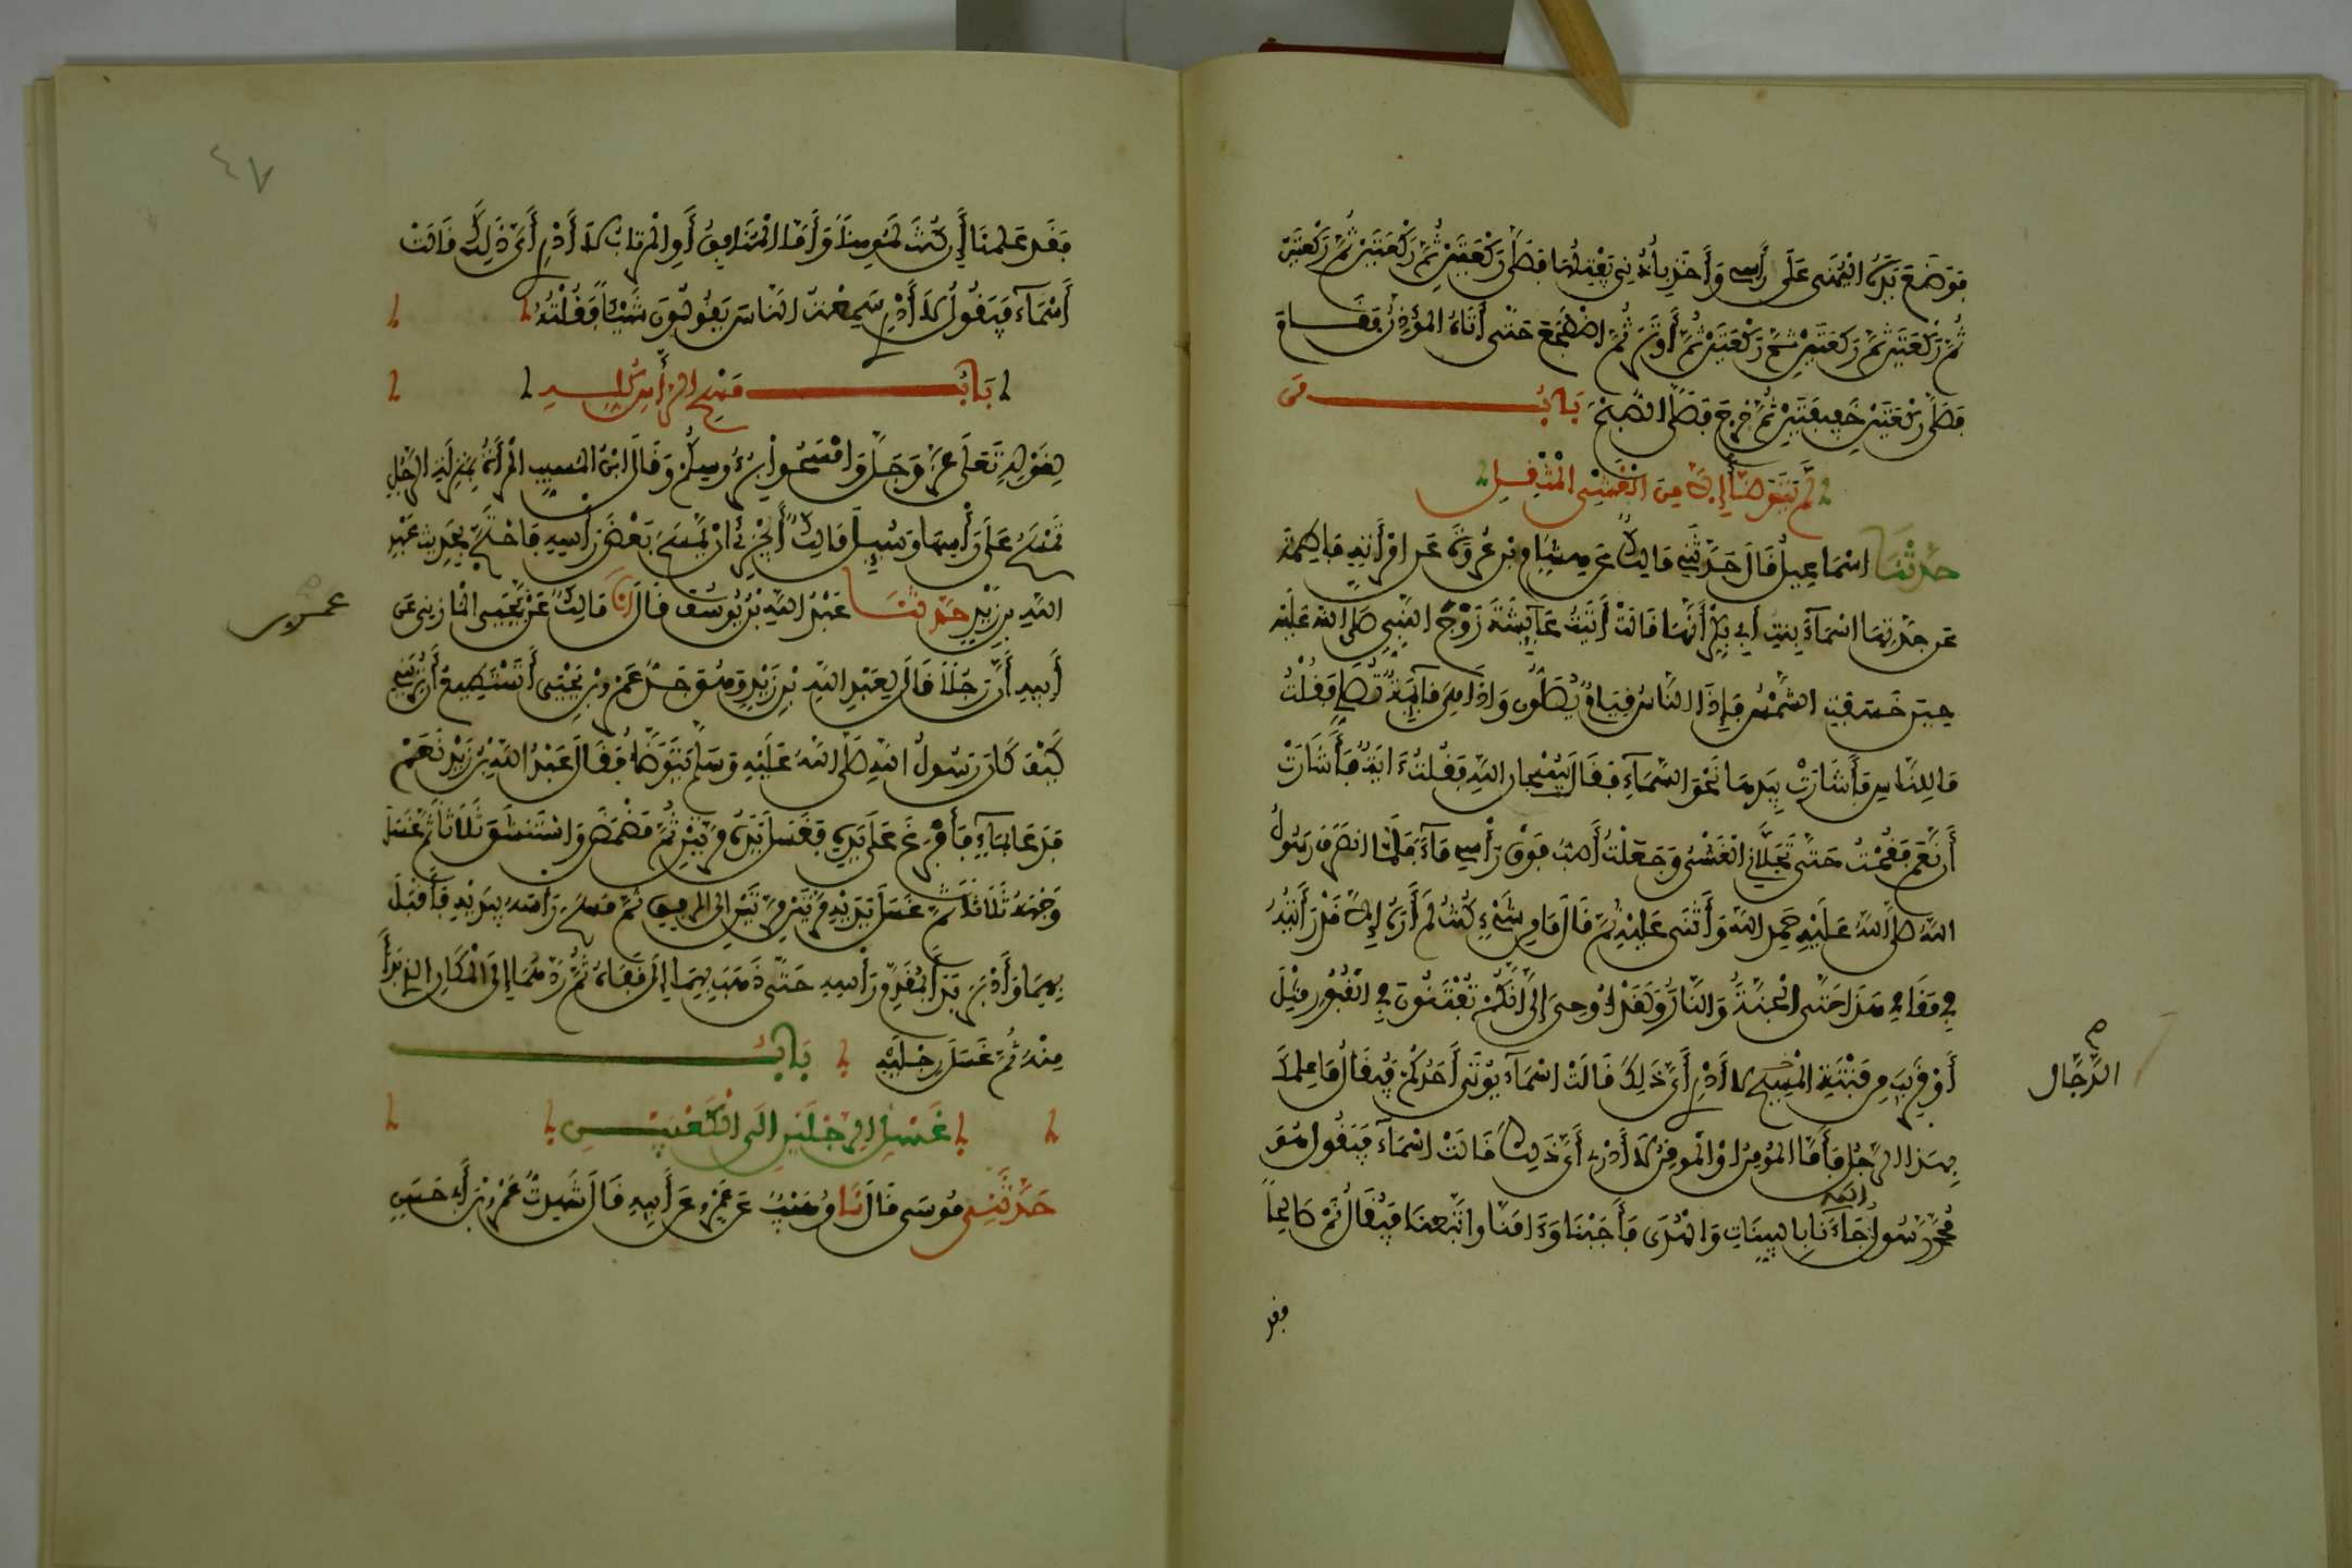 فَوَضَعَ يَدَهُ الْيُمْنَى عَلَى رَأْسِي وَأَخَذَ بِأُذُنِي يَفْتِلُهَا فَصَلَّى رَكْعَتَيْنِ ثُمَّ رَكْعَتَيْنِ ثُمَّ رَكْعَتَيْنِ
ثُمَّ رَكْعَتَيْنِ ثُمَّ رَكْعَتَيْنِ ثُمَّ رَكْعَتَيْنِ ثُمَّ أَوْتَرَ ثُمَّ اضْطَجَعَ حَتَّى أَتَاهُ الْمُؤَذِّنُ فَقَامَ
فَصَلَّى رَكْعَتَيْنِ خَفِيفَتَيْنِ ثُمَّ خَرَجَ فَصَلَّى الصُّبْحَ بَابُ مَنْ
لَمْ يَتَوَضَّأْ إِلَّا مِنَ الْغَشْيِ الْمُثْقِلِ
حَدَّثَنَا اسْمَاعِيلُ قَالَ حَدَّثَنِي مَالِكٌ عَنْ هِشَامِ بْنِ عُرْوَةَ عَنِ امْرَأَتِهِ فَاطِمَةَ
عَنْ جَدَّتِهَا اسْمَاءَ بِنْتِ أَبِي بَكْرٍ أَنَّهَا قَالَتْ أَتَيْتُ عَائِشَةَ زَوْجَ النَّبِيِّ صَلَّى اللَّهُ عَلَيْهِ
حِينَ خَسَفَتِ الشَّمْسُ فَإِذَا النَّاسُ قِيَامٌ يُصَلُّونَ وَإِذَا هِيَ قَائِمَةٌ تُصَلِّي فَقُلْتُ
مَا لِلنَّاسِ فَأَشَارَتْ بِيَدِهَا نَحْوَ السَّمَاءِ فَقَالَتْ سُبْحَانَ اللَّهِ فَقُلْتُ ءَايَةٌ فَأَشَارَتْ
أَنْ نَعَمْ فَقُمْتُ حَتَّى تَجَلَّانِي الْغَشْيُ وَجَعَلْتُ أَصُبُّ فَوْقَ رَأْسِي مَاءً فَلَمَّا انْصَرَفَ رَسُولُ
اللَّهِ صَلَّى اللَّهُ عَلَيْهِ حَمِدَ اللَّهَ وَأَثْنَى عَلَيْهِ ثُمَّ قَالَ مَا مِنْ شَيْءٍ كُنْتُ لَمْ أَرَهُ إِلَّا قَدْ رَأَيْتُهُ
فِي مَقَامِي هَذَا حَتَّى الْجَنَّةَ وَالنَّارَ وَلَقَدْ أُوحِيَ إِلَيَّ أَنَّكُمْ تُفْتَنُونَ فِي الْقُبُورِ مِثْلَ
أَوْ قَرِيبَ مِنْ فِتْنَةِ الْمَسِيحِ لَا أَدْرِي أَيَّ ذَلِكَ قَالَتْ اسْمَاءُ يُؤْتَى أَحَدُكُمْ فَيُقَالُ مَا عِلْمُكَ
بِهَذَا الرَّجُلِ فَأَمَّا الْمُؤْمِنُ اوْ الْمُوقِنُ لَا أَدْرِي أَيَّ ذَلِكَ قَالَتْ اسْمَاءُ فَيَقُولُ هُوَ
مُحَمَّدٌ رَسُولُ اللَّهِ جَاءَنَا بِالْبَيِّنَاتِ وَالْهُدَى فَأَجَبْنَا وَءَامَنَّا وَاتَّبَعْنَا فَيُقَالُ نَمْ صَالِحًا
الدَّجَّالِ
فقد
٤٧
فَقَدْ عَلِمْنَا إِنْ كُنْتَ لَمُومِنًا وَأَمَّا الْمُنَافِقُ أَوِ الْمُرْتَابُ لَا أَدْرِي أَيَّ ذَلِكَ قَالَتْ
أَسْمَاءُ فَيَقُولُ لَا أَدْرِي سَمِعْتُ النَّاسَ يَقُولُونَ شَيْئًا فَقُلْتُهُ
بَابُ مَسْحِ الرَّأْسِ كُلِّهِ
لِقَوْلِهِ تَعَلَى عَزَّ وَجَلَّ وَامْسَحُوا بِرُءُوسِكُمْ وَقَالَ ابْنُ الْمُسَيِّبِ الْمَرْأَةُ بِمَنْزِلَةِ الرَّجُلِ
تَمْسَحُ عَلَى رَأْسِهَا وَسُئِلَ مَالِكٌ أَيُجْزِئُ أَنْ يَمْسَحَ بَعْضَ رَأْسِهِ فَاحْتَجَّ بِحَدِيثِ عَبْدِ
اللَّهِ بْنِ زَيْدٍ حَدَّثَنَا عَبْدُ اللَّهِ بْنُ يُوسُفَ قَالَ أَنَا مَالِكٌ عَنْ يَحْيَى الْمَازِنِي عَنْ
عمرو بن
أَبِيهِ أَنَّ رَجُلًا قَالَ لِعَبْدِ اللَّهِ بْنِ زَيْدٍ وَهُوَ جَدُّ عَمْرِو بْنِ يَحْيَى أَتَسْتَطِيعُ أَنْ تُرِيَنِي
كَيْفَ كَانَ رَسُولُ اللَّهِ صَلَّى اللَّهُ عَلَيْهِ وَسَلَّمَ يَتَوَضَّأُ فَقَالَ عَبْدُ اللَّهِ بْنُ زَيْدٍ نَعَمْ
فَدَعَا بِمَاءٍ فَأَفْرَغَ عَلَى يَدِهِ فَغَسَلَ يَدَهُ مَرَّتَيْنِ ثُمَّ مَضْمَضَ وَاسْتَنْشَقَ ثَلَاثًا ثُمَّ غَسَلَ
وَجْهَهُ ثَلَاثًا ثُمَّ غَسَلَ يَدَيْهِ مَرَّتَيْنِ مَرَّتَيْنِ إِلَى الْمِرْفَقَيْنِ ثُمَّ مَسَحَ رَأْسَهُ بِيَدَيْهِ فَأَقْبَلَ
بِهِمَا وَأَدْبَرَ بَدَأَ بِمُقَدَّمِ رَأْسِهِ حَتَّى ذَهَبَ بِهِمَا إِلَى قَفَاهُ ثُمَّ رَدَّهُمَا إِلَى الْمَكَانِ الَّذِي بَدَأَ
مِنْهُ ثُمَّ غَسَلَ رِجْلَيْهِ بَابُ
غَسْلِ الرِّجْلَيْنِ إِلَى الْكَعْبَيْنِ
حَدَّثَنِي مُوسَى قَالَ نَا وُهَيْبٌ عَنْ عَمْرٍو عَنْ أَبِيهِ قَالَ شَهِدْتُ عَمْرَو بْنَ أَبِي حَسَنٍ